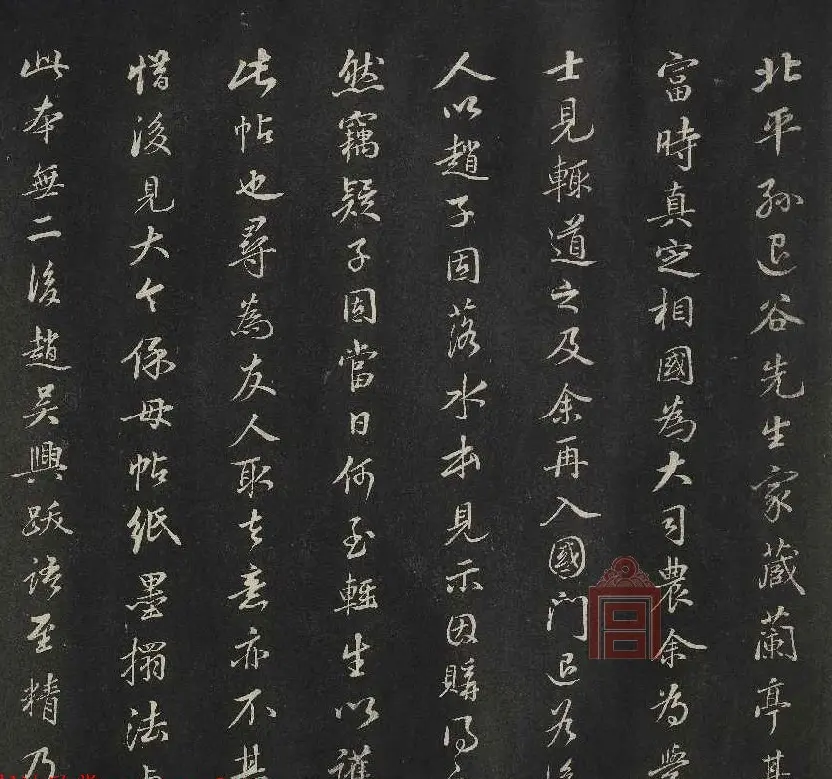 北平孫退谷先生家藏蘭亭甚
富時真定相國為大司農余為學
士見輒道之及余再入國門退谷後
人以趙子固落水本見示因購得
然竊疑子固當日何至輕生以護
此帖也尋為友人取去意亦不甚
惜後見大令保母帖紙墨搨法與
此本無二後趙吳興跋語至精乃